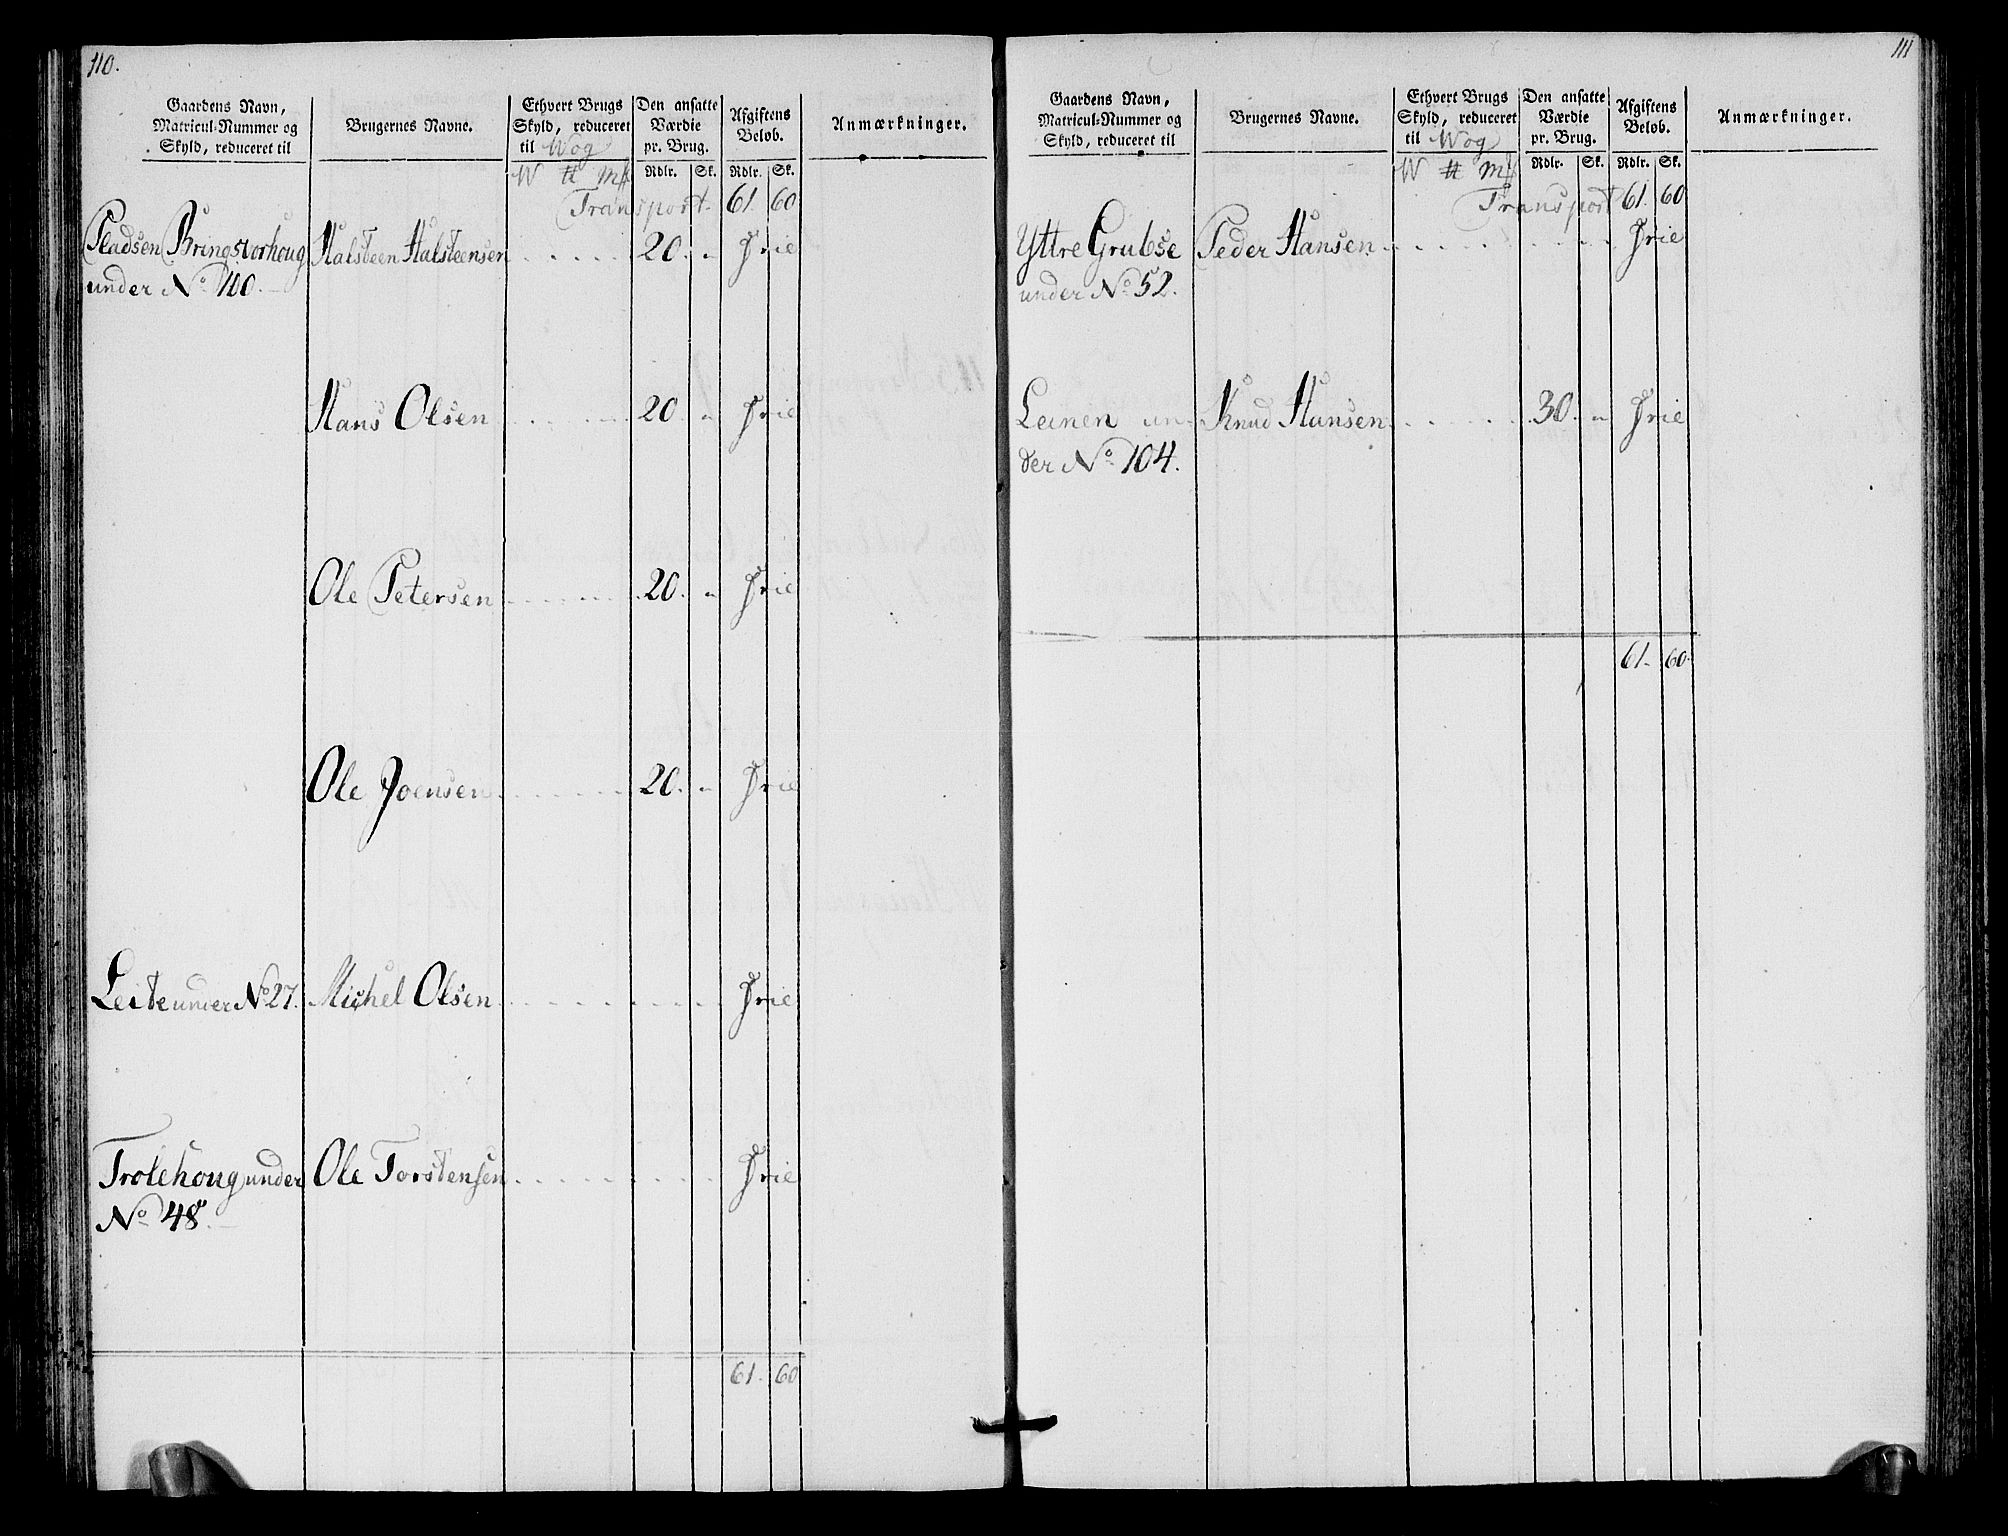 110.
Gaardens Navn,
Matricul-Nummer og
Skyld, reduceret til
Brugernes Navne.
Ethvert Brugs
Skyld, reduceret
til Wog
Den ansatte
Værdie
pr. Brug.
Afgiftens
Beløb.
Anmærkninger.
W ℔ mſk
Rdlr. Sk. Rdlr. Sk.
Transport 61. 60
Pladsen Bringsvorhoug Halsteen Halsteensen 20. " Frie
under No 110.
Hans Olsen 20. " Frie
Ole Petersen 20. " Frie
Ole Joensen 20. " Frie
Leite under No 27. Michel Olsen Frie
Trolehoug under Ole Torstensen Frie
No 48.
61. 60
111
Gaardens Navn,
Matricul-Nummer og
Skyld, reduceret til
Brugernes Navne.
Ethvert Brugs
Skyld, reduceret
til Wog
Den ansatte
Værdie
pr. Brug.
Afgiftens
Beløb.
Anmærkninger.
W ℔ mſk
Rdlr. Sk. Rdlr. Sk.
Transport 61. 60
Yttre Grubse Peder Hansen Frie
under No 52.
Leinen un- Knud Hansen 30. " Frie
der No 104.
61. 60.